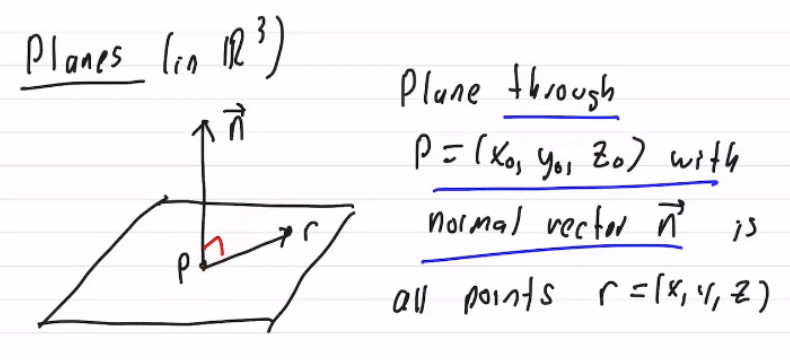 Planes (in ℝ³)
n⃗
r
P
Plane through
P = (x₀, y₀, z₀) with
normal vector n⃗ is
all points r = (x, y, z)